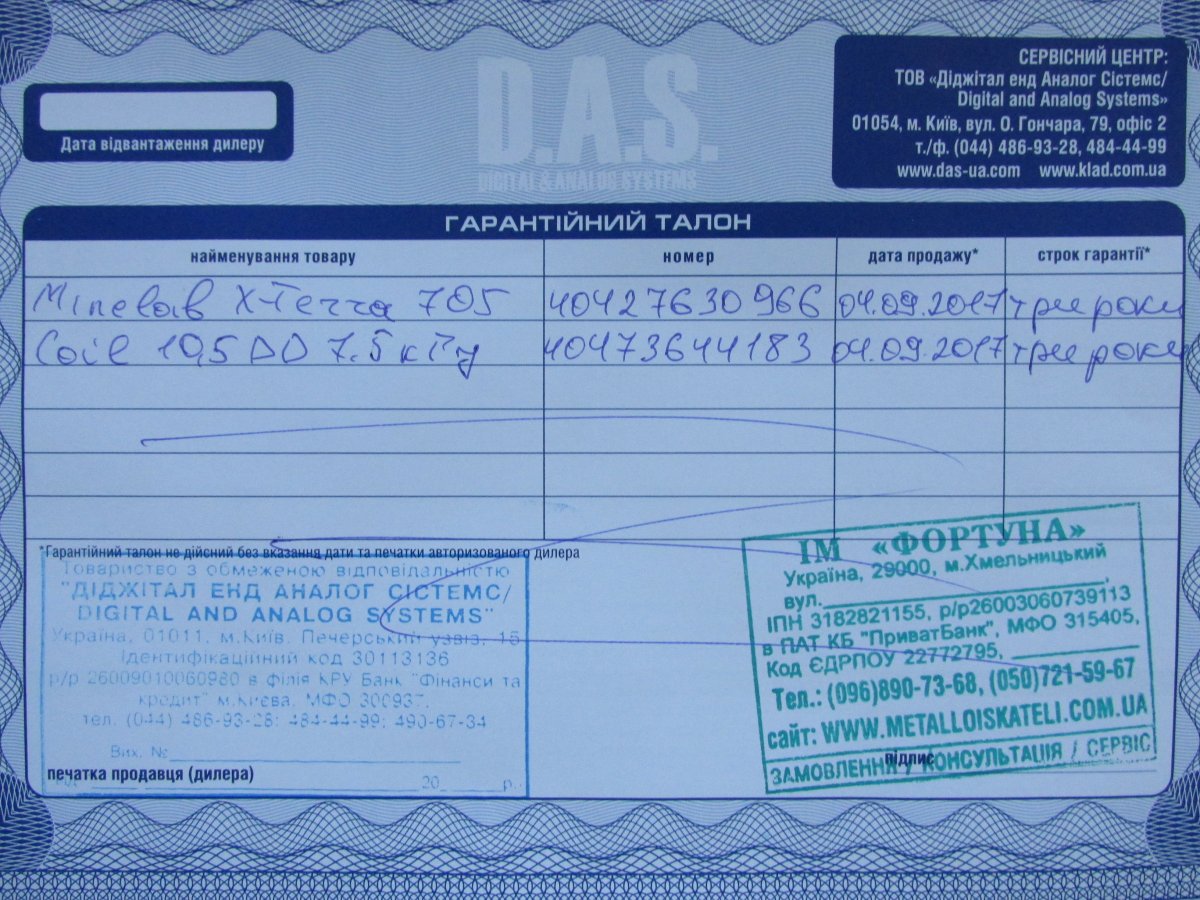 D.A.S.
DIGITAL & ANALOG SYSTEMS
Дата відвантаження дилеру
СЕРВІСНИЙ ЦЕНТР:
ТОВ «Діджітал енд Аналог Сістемс/
Digital and Analog Systems»
01054, м. Київ, вул. О. Гончара, 79, офіс 2
т./ф. (044) 486-93-28, 484-44-99
www.das-ua.com www.klad.com.ua
ГАРАНТІЙНИЙ ТАЛОН
найменування товару номер дата продажу* строк гарантії*
Minelab X-Terra 705 40427630966 04.09.2017 три роки
Coil 10,5 DD 7.5 кГц 40473644183 04.09.2017 три роки
*Гарантійний талон не дійсний без вказання дати та печатки авторизованого дилера
Товариство з обмеженою відповідальністю
"ДІДЖІТАЛ ЕНД АНАЛОГ СІСТЕМС/
DIGITAL AND ANALOG SYSTEMS"
Україна, 01011, м.Київ, Печерський узвіз, 15
Ідентифікаційний код 30113136
р/р 26009010060980 в філія КРУ Банк "Фінанси та
кредит" м.Києва, МФО 300937,
тел. (044) 486-93-28; 484-44-99; 490-67-34
Вих. №
20 р.
печатка продавця (дилера)
ІМ «ФОРТУНА»
Україна, 29000, м.Хмельницький
вул.
ІПН 3182821155, р/р26003060739113
в ПАТ КБ "ПриватБанк", МФО 315405,
Код ЄДРПОУ 22772795,
Тел.: (096)890-73-68, (050)721-59-67
сайт: WWW.METALLOISKATELI.COM.UA
ЗАМОВЛЕННЯ / КОНСУЛЬТАЦІЯ / СЕРВІС
підпис